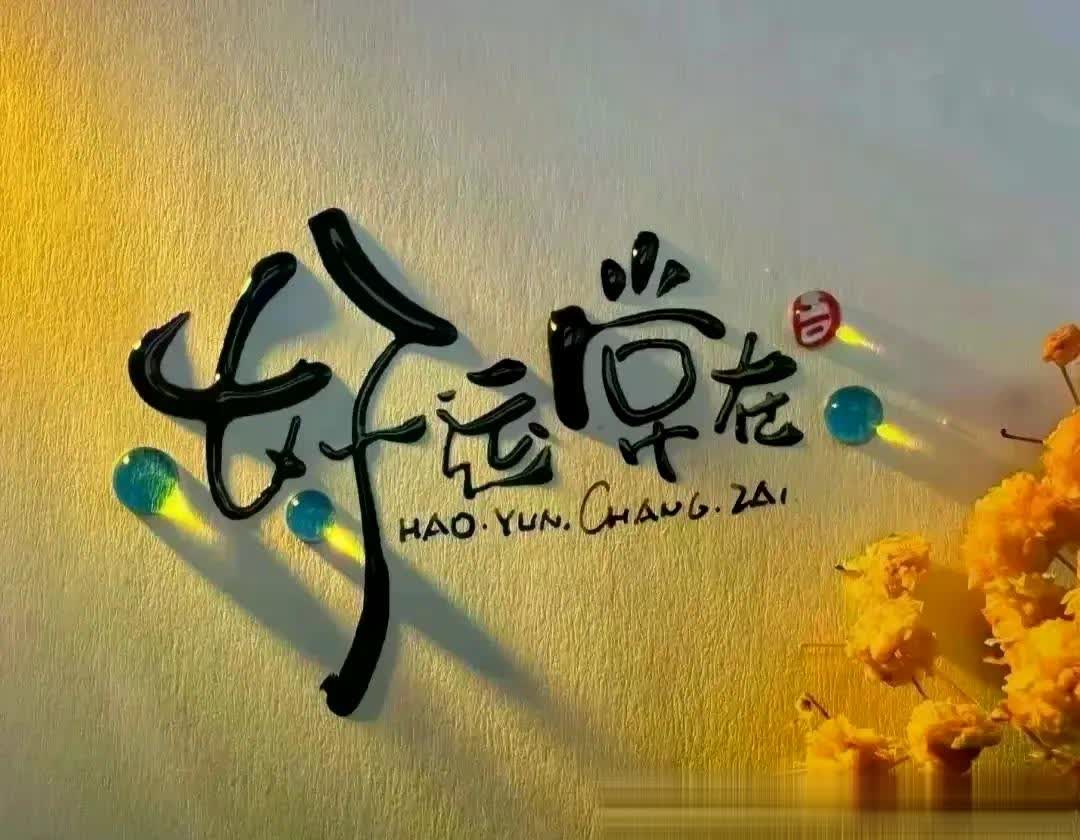 好运常在
HAO.YUN.CHANG.ZAI.